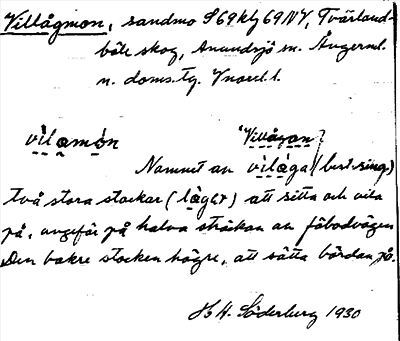 Villågmon, sandmo S69klg 69NV, Tvärland-
böle skog, Anundsjö sn. Ångerml.
n. doms.tg. Vnorrl.l.
vìlamón "Villågan"?
Namnet av vìlága (best. sing.)
två stora stockar (làger) att sitta och vila
på, ungefär på halva sträckan av fäbodvägen
Den bakre stocken högre, att sätta bördan på.
H. Söderberg 1930